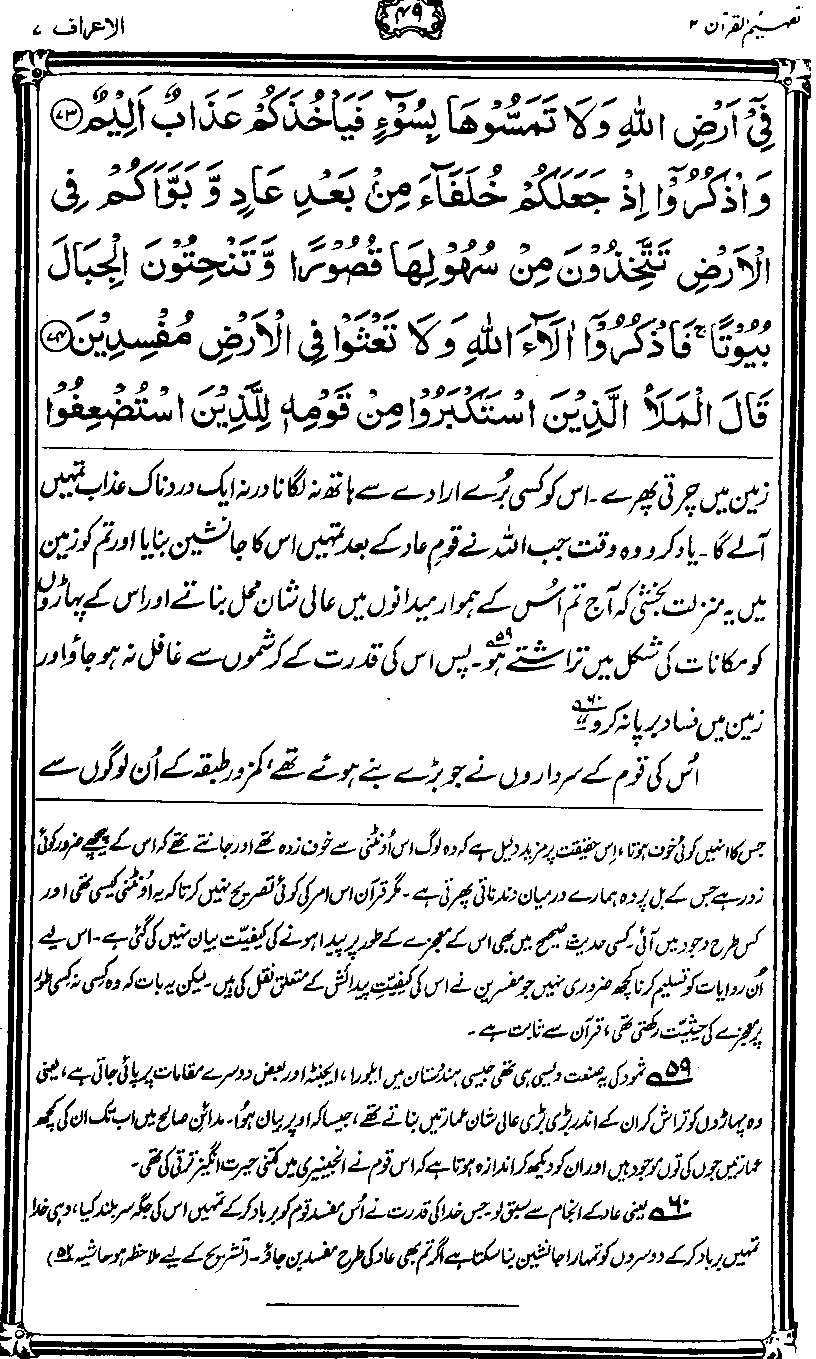 تفہیم القرآن ۲
۴۹
الاعراف ۷
فِيْٓ اَرْضِ اللّٰهِ وَلَا تَمَسُّوْهَا بِسُوْٓءٍ فَيَاْخُذَكُمْ عَذَابٌ اَلِيْمٌ ﴿۷۳﴾
وَاذْكُرُوْٓا اِذْ جَعَلَكُمْ خُلَفَآءَ مِنْۢ بَعْدِ عَادٍ وَّبَوَّاَكُمْ فِي
الْاَرْضِ تَتَّخِذُوْنَ مِنْ سُهُوْلِهَا قُصُوْرًا وَّتَنْحِتُوْنَ الْجِبَالَ
بُيُوْتًا ۚ فَاذْكُرُوْٓا اٰلَآءَ اللّٰهِ وَلَا تَعْثَوْا فِي الْاَرْضِ مُفْسِدِيْنَ ﴿۷۴﴾
قَالَ الْمَلَاُ الَّذِيْنَ اسْتَكْبَرُوْا مِنْ قَوْمِهٖ لِلَّذِيْنَ اسْتُضْعِفُوْا
زمین میں چرتی پھرے۔ اس کو کسی بُرے ارادے سے ہاتھ نہ لگانا ورنہ ایک دردناک عذاب تمہیں
آلے گا۔ یاد کرو وہ وقت جب اللہ نے قومِ عاد کے بعد تمہیں اس کا جانشین بنایا اور تم کو زمین
میں یہ منزلت بخشی کہ آج تم اُس کے ہموار میدانوں میں عالی شان محل بناتے اور اس کے پہاڑوں
کو مکانات کی شکل میں تراشتے ہو۵۹۔ پس اس کی قدرت کے کرشموں سے غافل نہ ہو جاؤ اور
زمین میں فساد برپا نہ کرو۶۰۔"
اُس کی قوم کے سرداروں نے جو بڑے بنے ہوئے تھے، کمزور طبقہ کے اُن لوگوں سے
جس کا انہیں کوئی خوف ہوتا، اِس حقیقت پر مزید دلیل ہے کہ وہ لوگ اس اُونٹنی سے خوف زدہ تھے اور جانتے تھے کہ اس کے پیچھے ضرور کوئی
زور ہے جس کے بل پر وہ ہمارے درمیان دندناتی پھرتی ہے۔ مگر قرآن اس امر کی کوئی تصریح نہیں کرتا کہ یہ اُونٹنی کیسی تھی اور
کس طرح وجود میں آئی۔ کسی حدیث صحیح میں بھی اس کے معجزے کے طور پر پیدا ہونے کی کیفیت بیان نہیں کی گئی ہے۔ اس لیے
اُن روایات کو تسلیم کرنا کچھ ضروری نہیں جو مفسرین نے اس کی کیفیتِ پیدائش کے متعلق نقل کی ہیں۔ لیکن یہ بات کہ وہ کسی نہ کسی طور
پر معجزے کی حیثیت رکھتی تھی، قرآن سے ثابت ہے۔
۵۹ ثمود کی یہ صنعت ویسی ہی تھی جیسی ہندستان میں ایلورا، ایجنٹہ اور بعض دوسرے مقامات پر پائی جاتی ہے، یعنی
وہ پہاڑوں کو تراش کر ان کے اندر بڑی بڑی عالی شان عمارتیں بناتے تھے، جیسا کہ اوپر بیان ہُوا۔ مدائن صالح میں اب تک ان کی کچھ
عمارتیں جوں کی توں موجود ہیں اور ان کو دیکھ کر اندازہ ہوتا ہے کہ اس قوم نے انجینیری میں کتنی حیرت انگیز ترقی کی تھی۔
۶۰ یعنی عاد کے انجام سے سبق لو۔ جس خدا کی قدرت نے اُس مفسد قوم کو برباد کر کے تمہیں اس کی جگہ سربلند کیا، وہی خدا
تمہیں برباد کر کے دوسروں کو تمہارا جانشین بنا سکتا ہے اگر تم بھی عاد کی طرح مفسد بن جاؤ۔ (تشریح کے لیے ملاحظہ ہو حاشیہ ۵۲)